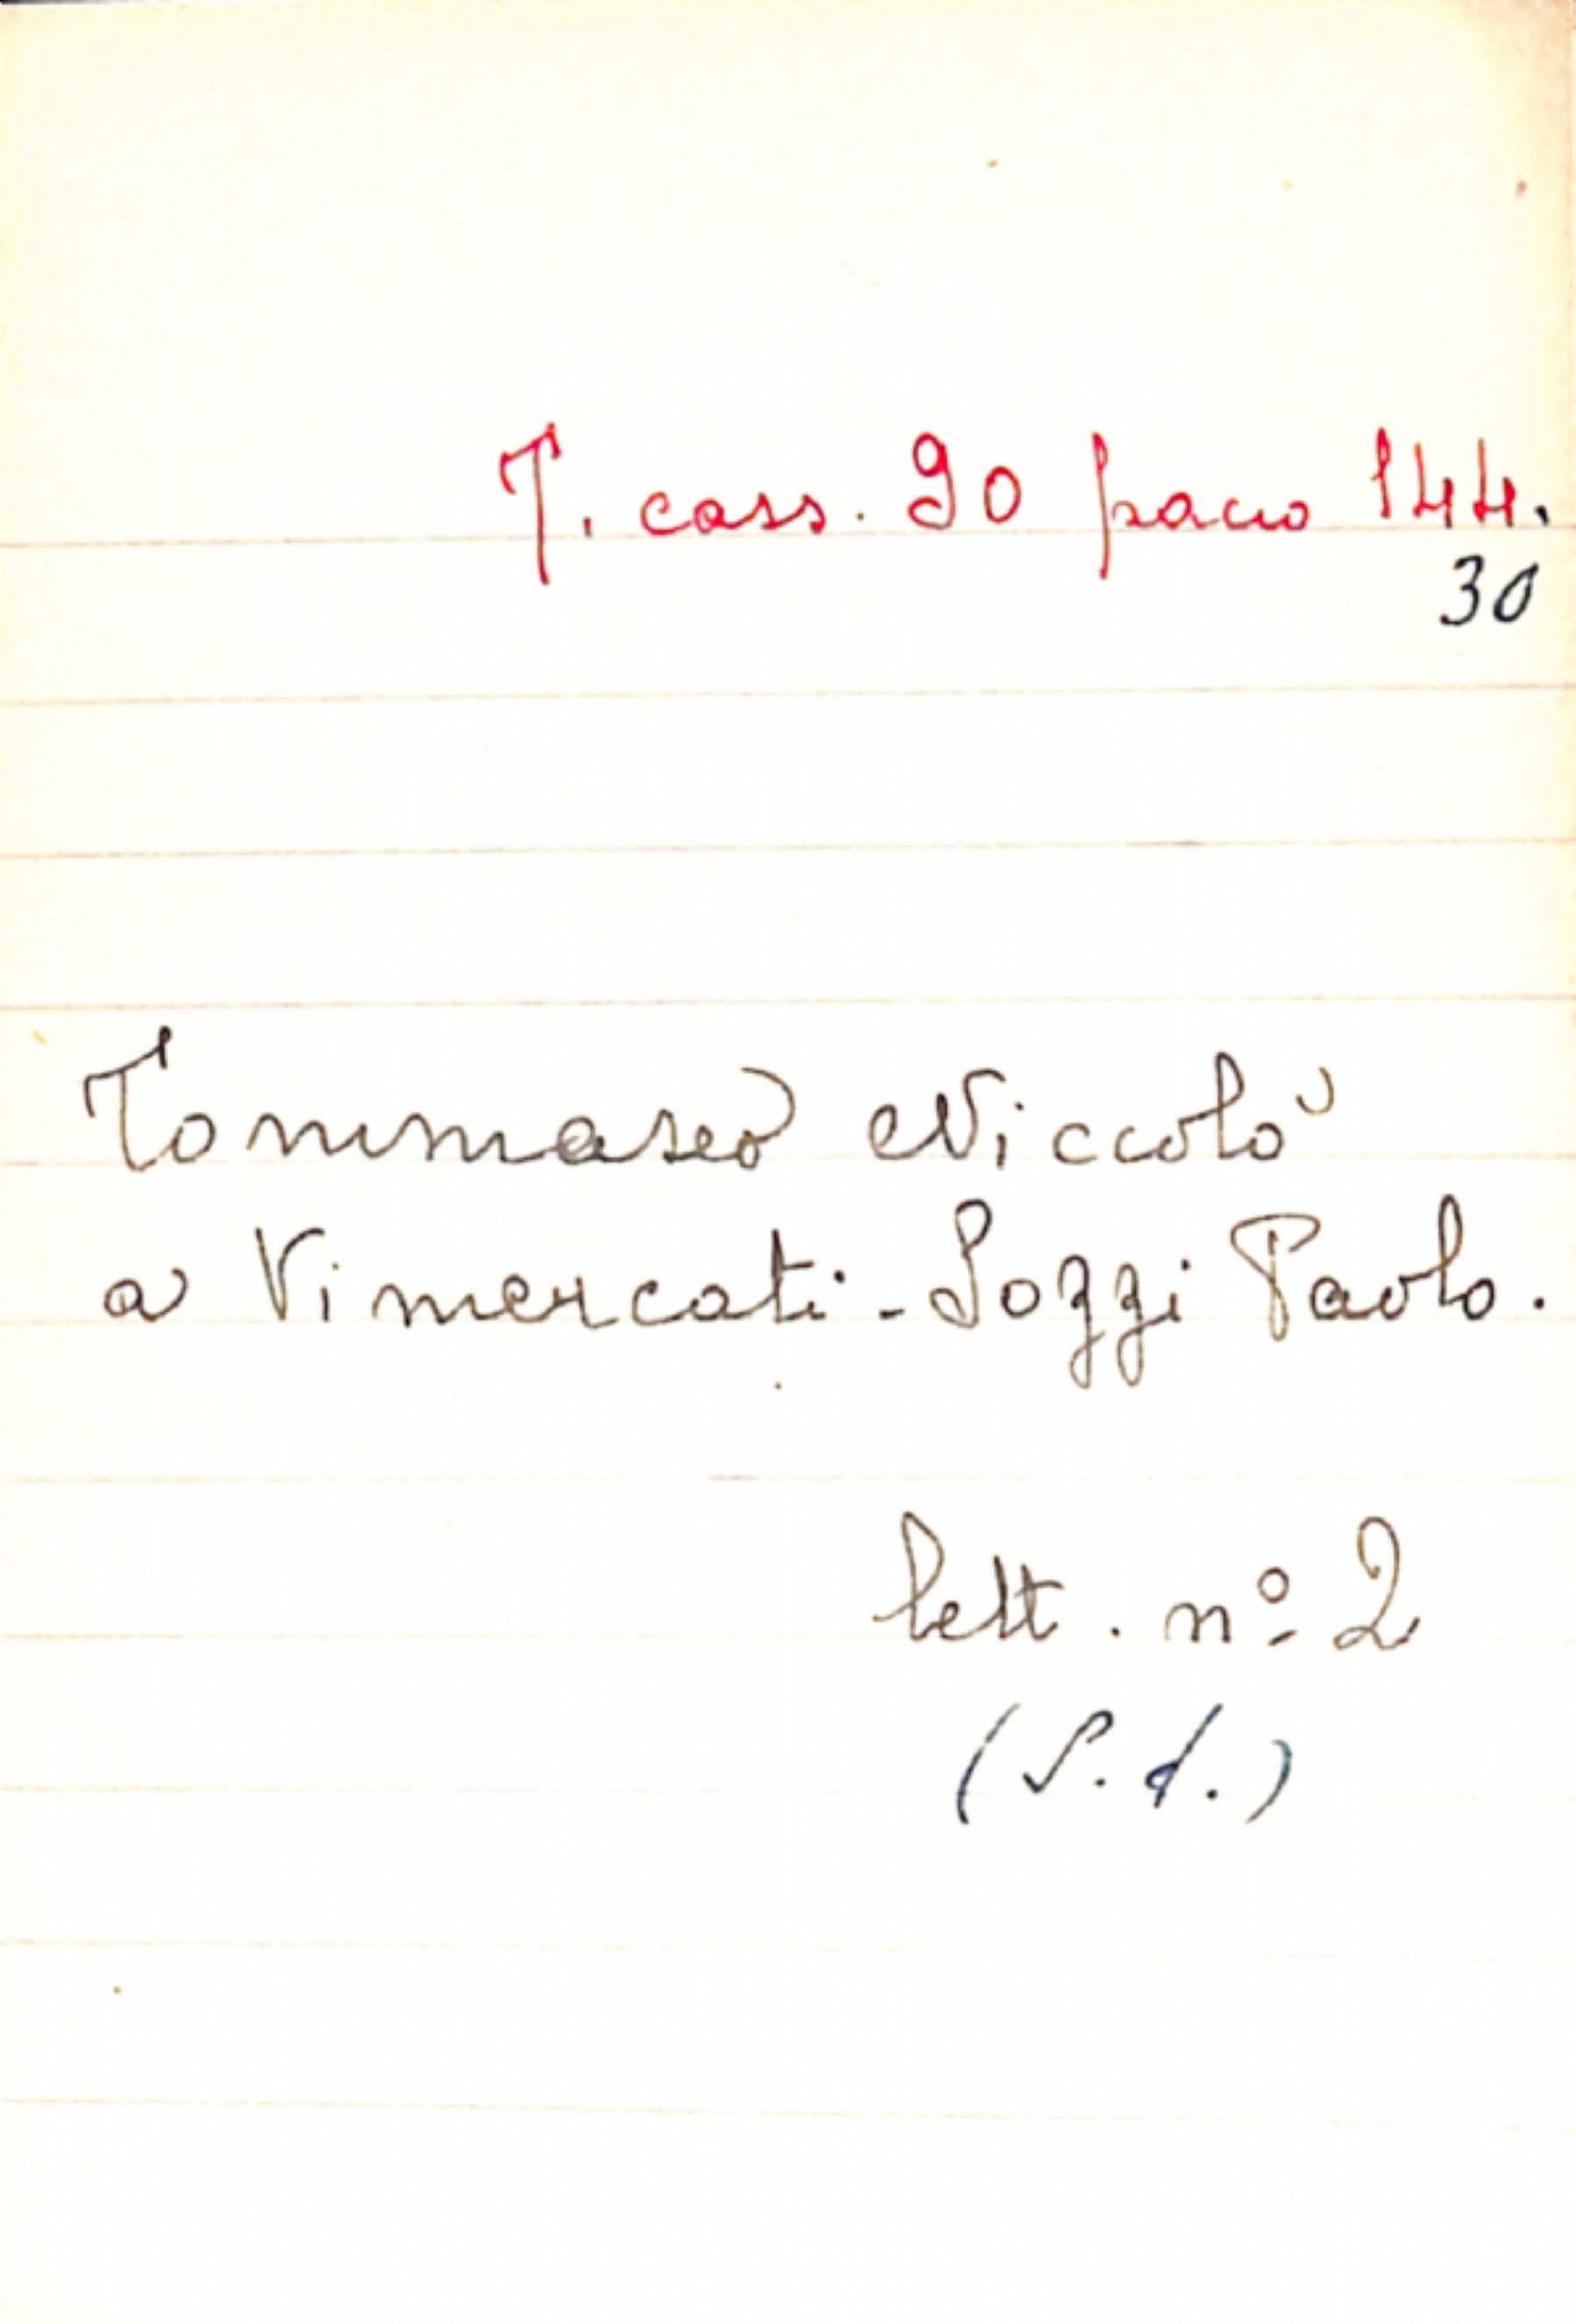 T. cass. 90 pacco 144.
30
Tommaseo Niccolò
a Vimercati-Sozzi Paolo.
lett. nº 2
(S.d.)